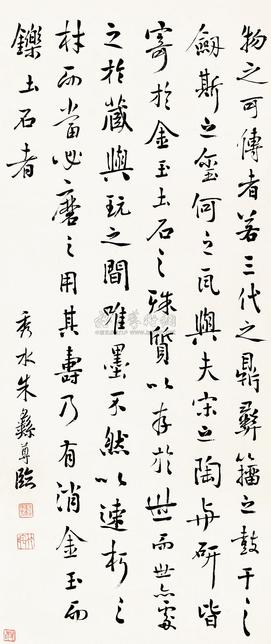 物之可傳者若三代之鼎彝籀之鼓干之
劔斯之璽何之瓦與夫宋之陶与研皆
寄於金玉土石之殊質以存於世而世亦寘
之於藏與玩之間唯墨不然以速朽之
材而當必磨之用其壽乃有消金玉而
鑠土石者
秀水朱彝尊臨